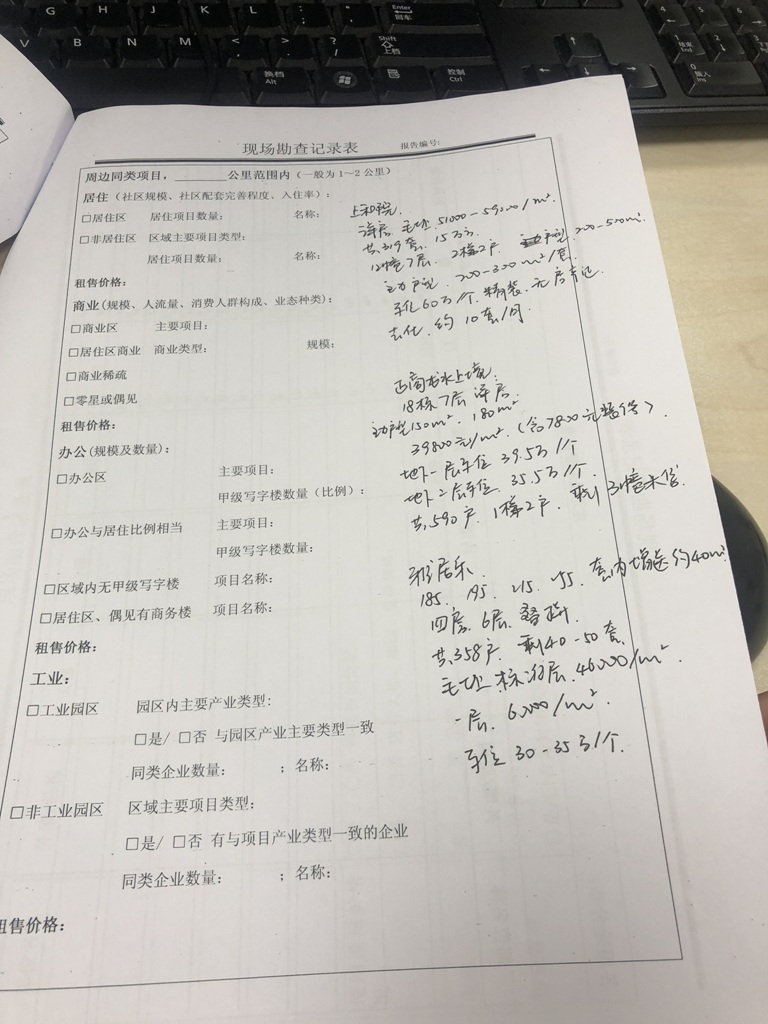 现场勘查记录表 报告编号:
周边同类项目，________公里范围内（一般为1~2公里）
居住（社区规模、社区配套完善程度、入住率）：
□居住区 居住项目数量： 名称： 上和院.
□非居住区 区域主要项目类型： 洋房. 毛坯. 51000-59000/m².
共319套. 15万方.
居住项目数量： 名称： 12幢7层. 2梯2户. 户型 200-500m².
主力户型. 200-300m²/套.
租售价格：
车位60万/个. 精装.
商业(规模、人流量、消费人群构成、业态种类)：
去化. 约10套/月.
□商业区 主要项目：
□居住区商业 商业类型： 规模：
□商业稀疏
正商 上境.
□零星或偶见
18栋7层 洋房.
租售价格：
主力户型150m². 180m².
39800元/m². (含7800元装修).
办公(规模及数量)：
地下一层车位 39.5万/个
□办公区 主要项目：
地下2层车位. 35.5万/个.
甲级写字楼数量（比例）：
共590户. 1梯2户. 剩 3幢未
□办公与居住比例相当 主要项目：
甲级写字楼数量：
雅居乐.
185. 195. 215. 255. 套内 约40m²
□区域内无甲级写字楼 项目名称：
四层. 6层.
□居住区、偶见有商务楼 项目名称：
共358户. 剩40-50套.
租售价格：
毛坯 标准层. 46000/m².
工业：
一层. 6000/m².
□工业园区 园区内主要产业类型:
车位 30-35万/个.
□是/ □否 与园区产业主要类型一致
同类企业数量： ；名称：
□非工业园区 区域主要项目类型：
□是/ □否 有与项目产业类型一致的企业
同类企业数量： ；名称：
租售价格：